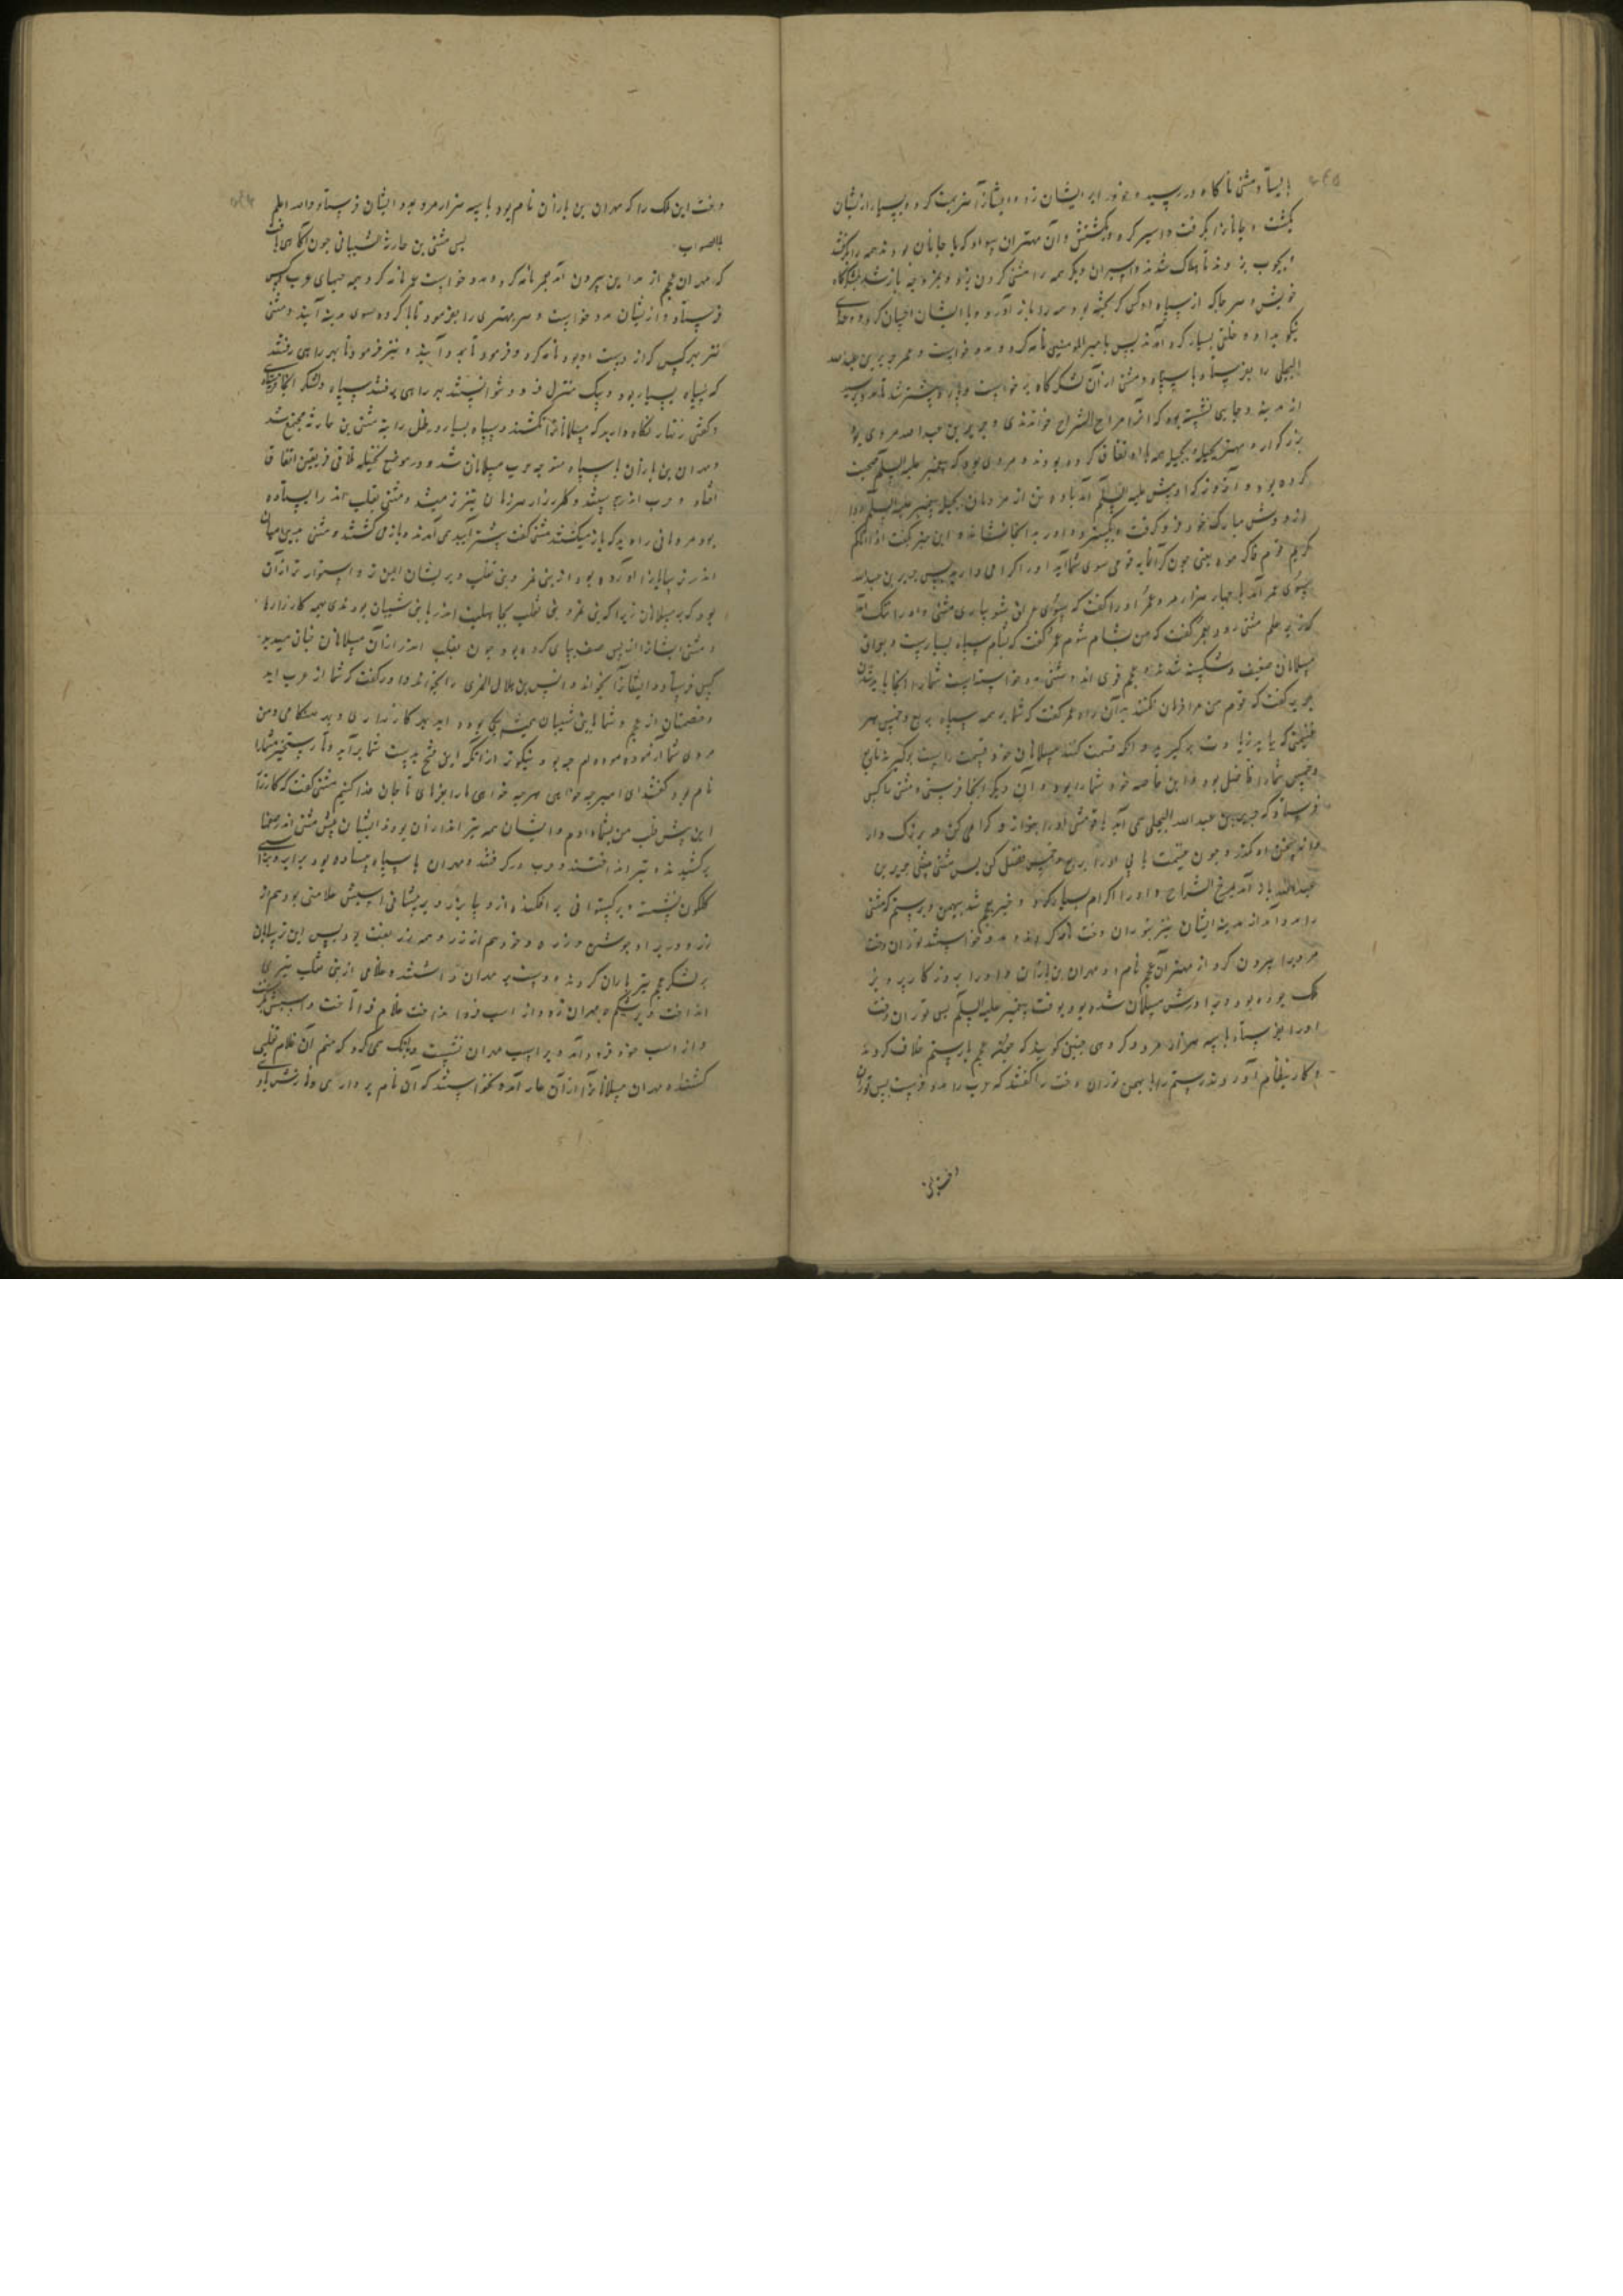 بایستاد مثنی ناگاه در رسید و خود را بر ایشان زد و ایشانرا هزیمت کرد و بسیار از ایشان
بکشت و جابانرا بگرفت و اسیر کرد و بکشتش و آن مهتران سواد که با جابان بودند همه را بگرفتند
بچوب بزدند تا هلاک شدند و اسیران دیگر همه را مثنی گردن بزد و باز شد بلشکرگاه
خویش و هر جا که از سپاه او کسی گریخته بود همه را باز آورد و با ایشان احسان کرد و وعدهای
نیکو بداد و خلقی بسیار گرد آمدند پس بامیر المومنین نامه کرد و مدد خواست و عمر جریر بن عبد الله
البجلی را بفرستاد با سپاه و مثنی از آن لشکرگاه برخاست و پیشتر شد تا مدد برسید
از مدینه و بجایی نشسته بود که آنرا مراح السراح خواندندی و جریر بن عبد الله مردی بود
بزرگوار و مهتر بجیله و بجیله همه با او اتفاق کرده بودند و مردی بود که پیغمبر علیه السلام صحبت
کرده بود و آن روز که او پیش علیه السلام آمد با ده تن از مردمان بجیله پیغمبر علیه السلام ردا
از دوش مبارک خود فرو گرفت و بگسترد و او را بدانجا نشاند و این خبر گفت اذا اتاکم
کریم قوم فاکرموه یعنی چون گرانمایه قومی سوی شما آید او را گرامی دارید پس جریر بن عبد الله
بسوی عمر آمد با چهار هزار مرد و عمر او را گفت که بسوی عراق بشو بیاری مثنی و او را ننگ آمد
که زیر علم مثنی رود عمر گفت که من بشام شوم عمر گفت که بشام سپاه بسیارست و بعراق
مسلمانان ضعیف و شکسته شدند و عجم قوی اند و مثنی مدد خواستست شما را آنجا باید شدن
جریر گفت که قوم من مرا فرمان نکنند بدان راه عمر گفت که شما بر همه سپاه بربع و خمس هر
غنیمتی که یابید زیادت برگیرید و آنکه قسمت کنند مسلمانان خود قسمت راست برگیرید تا ربع
و خمس شما را فاضل بود و این خاصه خود شما را بود و آن دیگر آنجا فرستی و مثنی تا کسی
فرستاد که جریر بن عبد الله البجلی می آید با تو مثنی او را بنواز و گرامی کن مر بزرگ دار
و چون غنیمت یابی او را بربع و خمس فضل کن پس مثنی جریر بن
عبد الله باد آمد بمرج السراح و او را اکرام بسیار کرد و خبر بعجم شد ببهمن و برستم که مثنی
را مدد آمد از مدینه ایشان نیز بتوران دخت نامه کردند و مدد خواستند توران دخت
مردیرا بیرون کرد از مهتران عجم نام او مهران بن باذان و او را بروزگار پرویز
ملک بوده بود و پدر او مسلمان شده بود بوقت پیغمبر علیه السلام پس توران دخت
او را بفرستاد با سه هزار مرد و گروهی چنین گویند که مهتران عجم با رستم خلاف کردند
و کار بنظام آوردند رستم را با بهمن توران دخت را گفتند که عرب را مدد فرست پس توران
دخت این
دخت این ملک را که مهران بن باذان نام بود با سه هزار مرد بمدد ایشان فرستاد و الله اعلم
بالصواب. پس مثنی بن حارثة الشیبانی چون آگاهی یافت
که مهران عجم از مداین بیرون آمد بعمر نامه کرد و مدد خواست عمر نامه کرد بهمه جهای عرب کس
فرستاد و از ایشان مدد خواست و هر مهتری را بفرمود تا با گروه سوی مدینه آیند و مثنی
نیز بهر کس که از دست او بود نامه کرد و فرمود تا بمدد آیند و نیز فرمود تا بهر راهی رفتند
که سپاه بسیار بود و بیک منزل فرود نتوانستند بهر راهی برفتند سپاه و لشکر
و گفتی زنهار نگاه دارید که مسلمانانرا نکشند و سپاه بسیار در ظل رایة مثنی بن حارثه مجتمع شد
و مهران بن باذان با سپاه متوجه حرب مسلمانان شد و در موضع نخیله تلاقی فریقین اتفاق
افتاد و حرب اندر پیوستند و کارزار هر زمان تیزتر میشد و مثنی بقلب اندر ایستاده
بود مردمانی را دید که باز میگشتند مثنی گفت پیشتر آیید می آمدند و باز می گشتند و مثنی
اندر ترسایانرا آورده بود از بنی نمر و بنی تغلب و بر ایشان ایمن تر و استوارتر از آن
بود که بر مسلمانان زیرا که بنی نمر و بنی تغلب بجاهلیت اندر با بنی شیبان بودندی بهمه کارزارها
و مثنی ایشانرا از پس صف بپای کرده بود چون بقلب اندر از آن مسلمانان چنان میدید
کس فرستاد و ایشانرا بخواند و انس بن هلال النمری را بخواند و او را گفت که شما از عرب اید
و خصمتان از عجم و شما با بنی شیبان همیشه یکی بوده اید بهر کارزاری و بهر هنگامی و من
مردی شما آزموده ام چه بود نیکوتر از آنکه این فتح بدست شما برآید و تا رستخیز شما را
نام بود گفتند ای امیر چه خواهی هر چه خواهی ما را بفرمای تا جان فدا کنیم مثنی گفت که کارزار
این پیش قلب من بشما دادم و ایشان همه تیراندازان بودند ایشان پیش مثنی اندر صفها
برکشیدند و تیر انداختند و حرب در گرفتند و مهران با سپاه ایستاده بود بر اسپی
گلگون نشسته و برگستوانی بر افکنده از دیبا زرد و بر پیشانی اسبش علامتی بود هم از
زر و در بر او جوشن و زره و خود هم از زر و همه زر بفت بود پس این ترسایان
بر لشکر عجم تیر باران کردند و دست بر مهران داشتند و غلامی از بنی تغلب تیری
انداخت و بر شکم مهران زد و از اسب فرود انداخت غلام فرا تاخت و اسبش بگرفت
و از اسب خود فرود آمد و بر اسب مهران نشست و بانگ می کرد که منم آن غلام تغلبی
کشنده مهران مسلمانانرا از آن عار آمد و نخواستند که آن نام بردارد